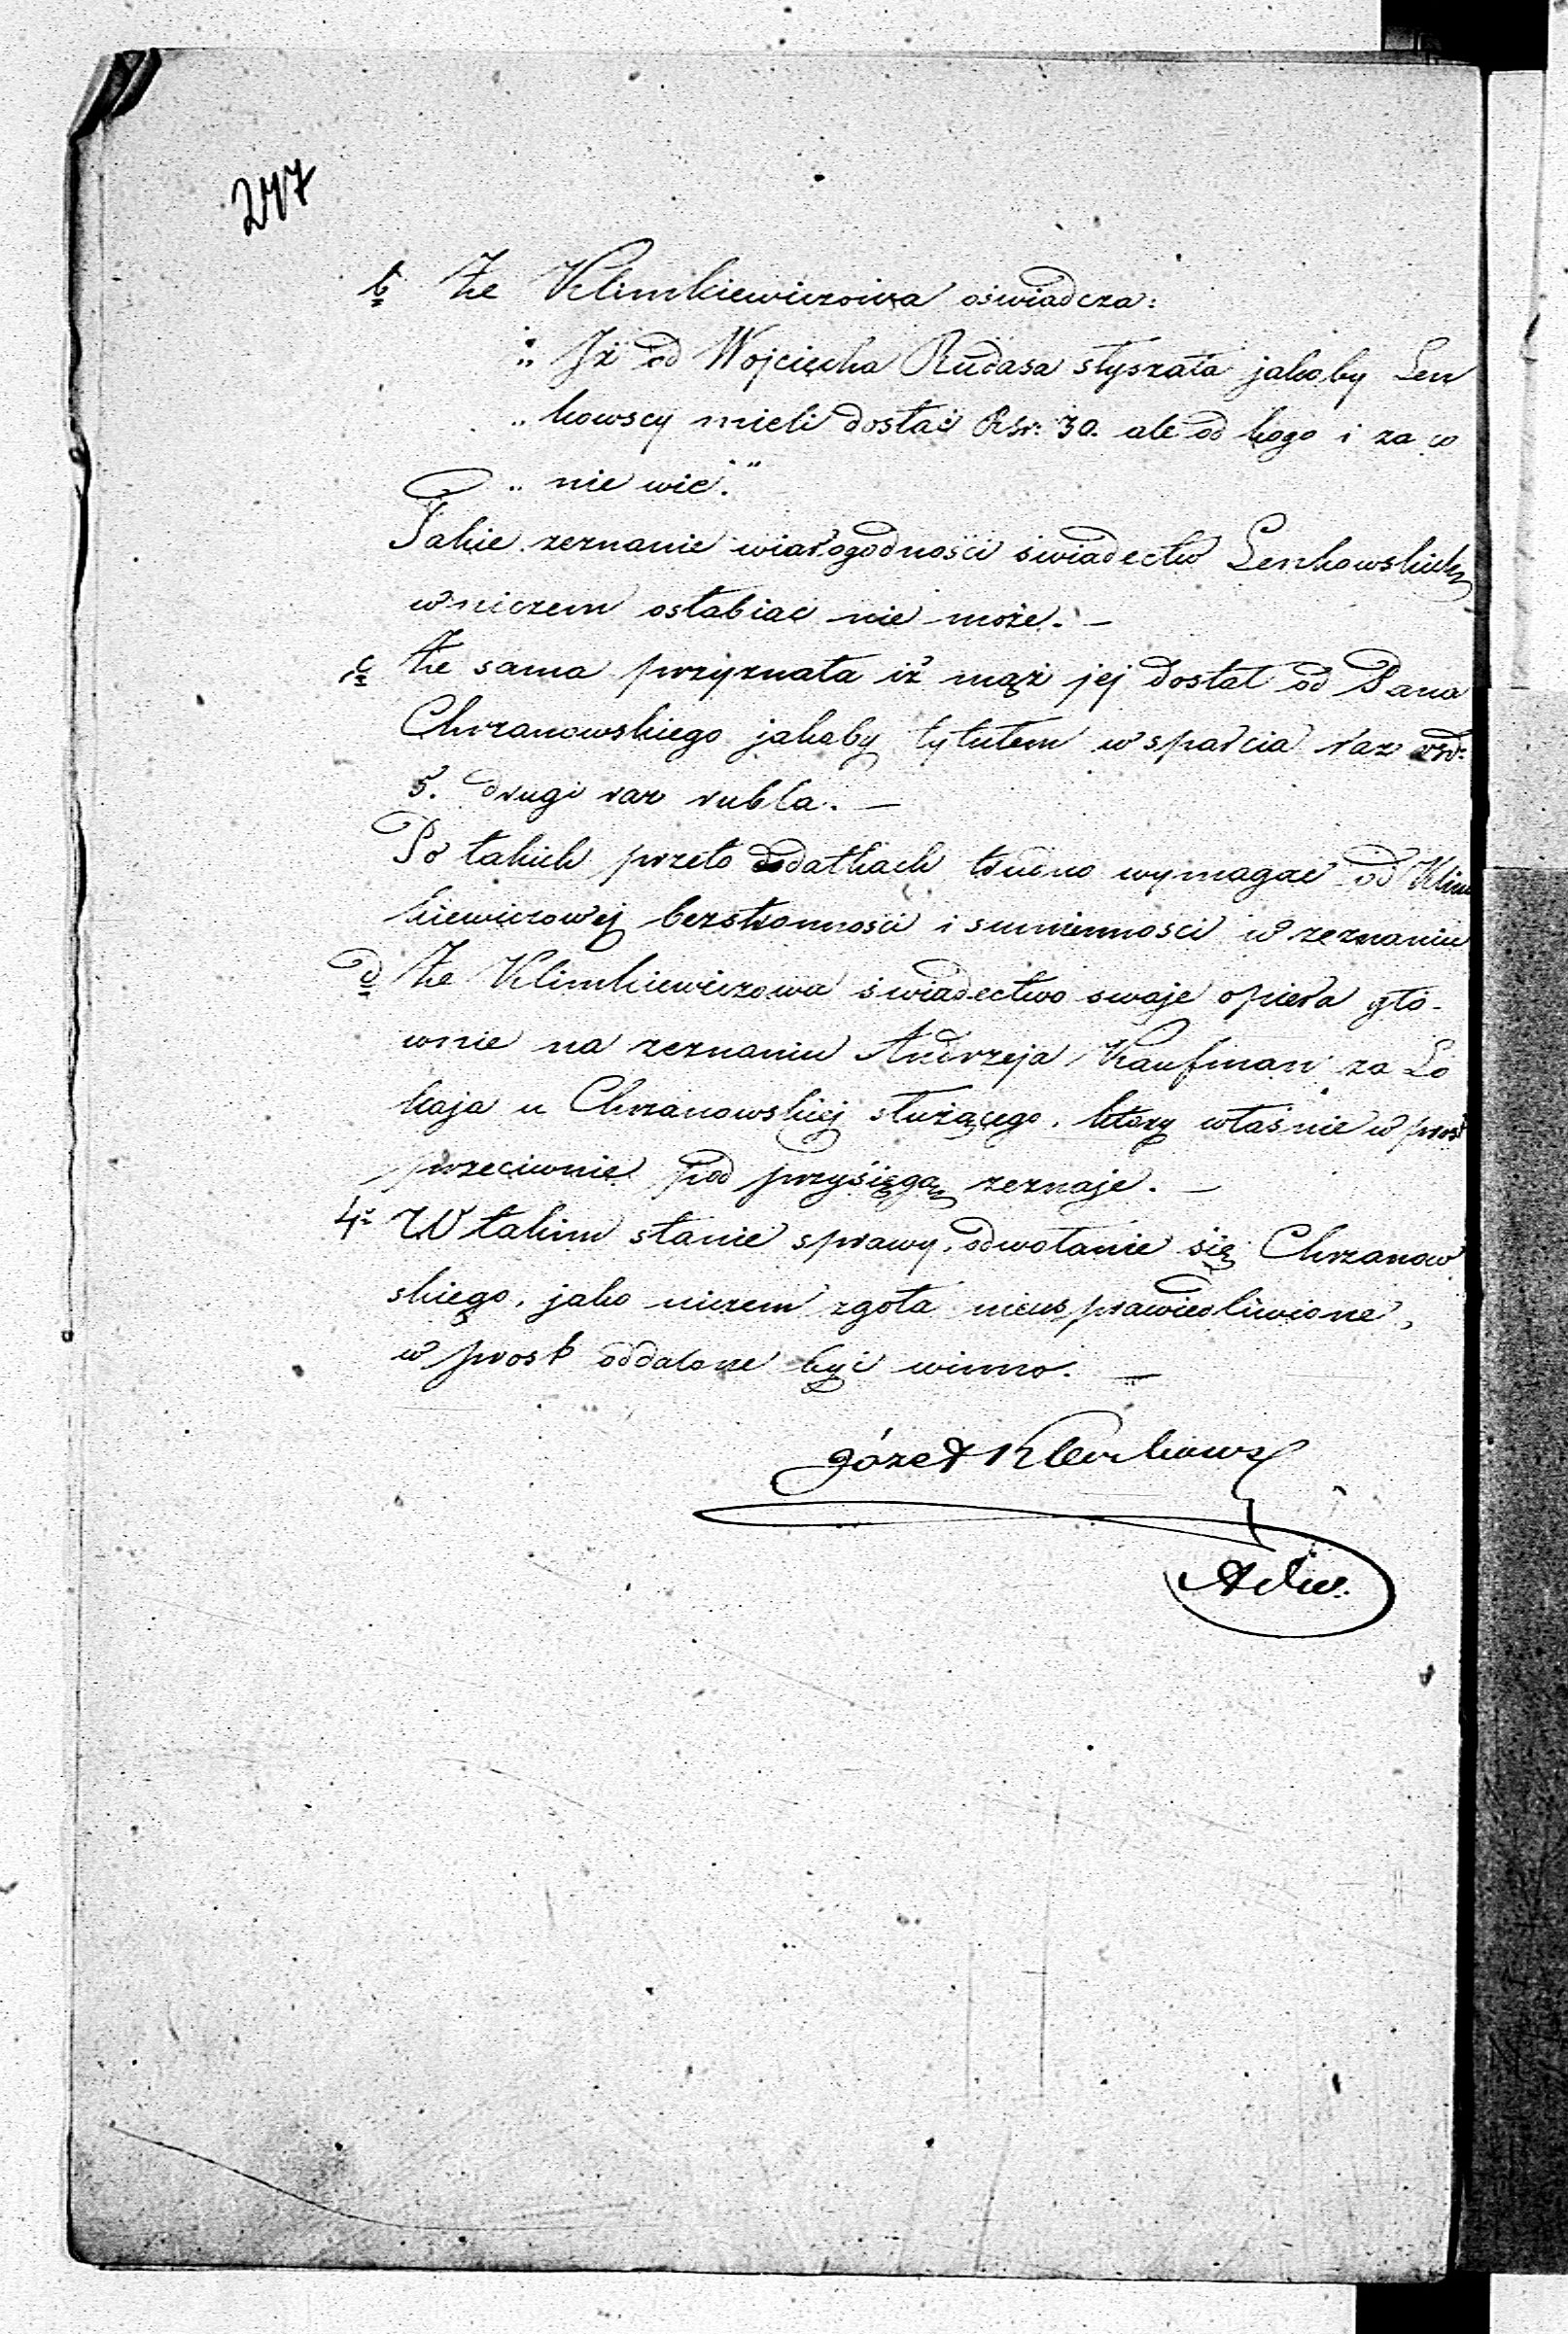 247
b Że Klimkiewiczowa oświadcza:
„ Iż od Wojciecha Rudasa słyszała jakoby Len
„ kowscy mieli dostać Rsr: 30. ale od kogo i za co
„ nie wie."
Takie zeznanie wiarogodności świadectw Lenkowskich
w niczem osłabiać nie może. —
c Że sama przyznała iż mąż jej dostał od Pana
Chrzanowskiego jakoby tytułem wsparcia raz rsr:
5. drugi raz rubla. —
Po takich przeto dodatkach trudno wymagać od Klim
kiewiczowej bezstronności i sumienności w zeznaniu
d Że Klimkiewiczowa świadectwo swoje opiera głó-
wnie na zeznaniu Andrzeja Kaufman za Lo
kaja u Chrzanowskiej służącego, który właśnie w prost
przeciwnie pod przysięgą zeznaje. —
4º W takim stanie sprawy, odwołanie się Chrzanow
skiego, jako niczem zgoła nieusprawiedliwione,
w prost oddalone być winno. —
Józef
Adw.